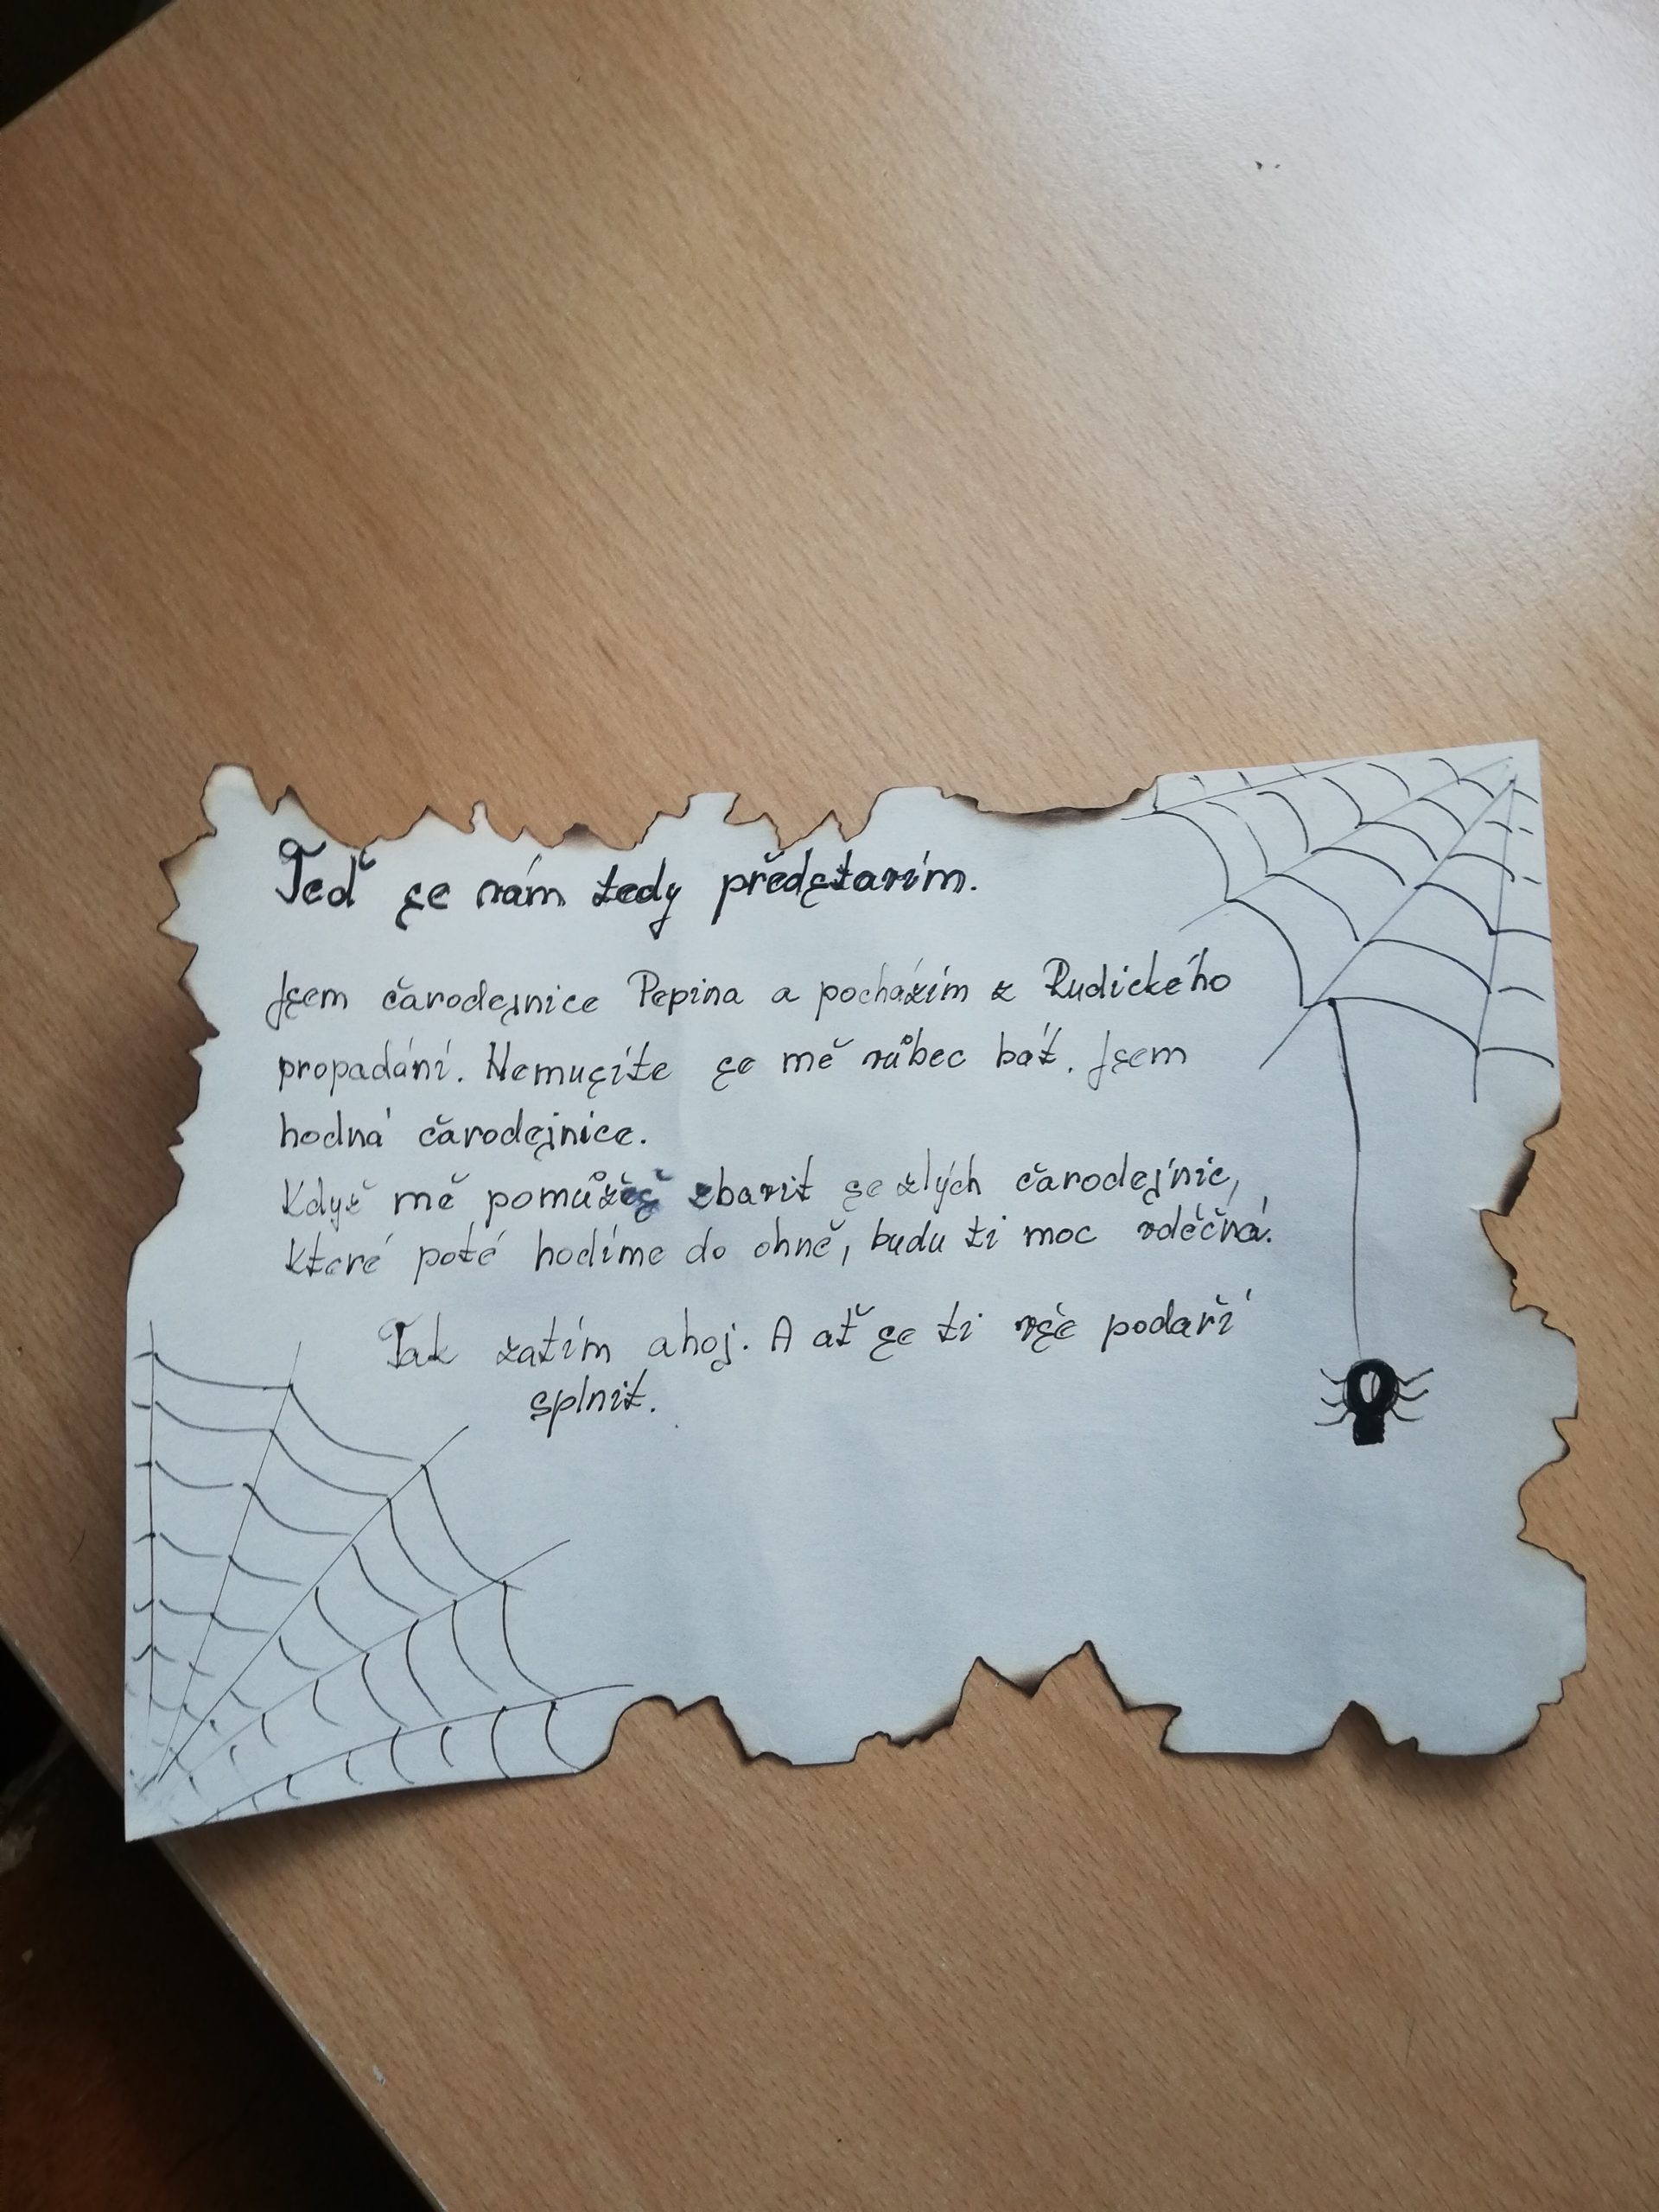 Teď se vám tedy představím.
Jsem čarodejnice Pepina a pocházím z Rudického
propadání. Nemusíte se mě vůbec bát. Jsem
hodná čarodejnice.
Když mě pomůžeš zbavit se zlých čarodejnic,
které poté hodíme do ohně, budu ti moc vděčná.
Tak zatím ahoj. A ať se ti vše podaří
splnit.